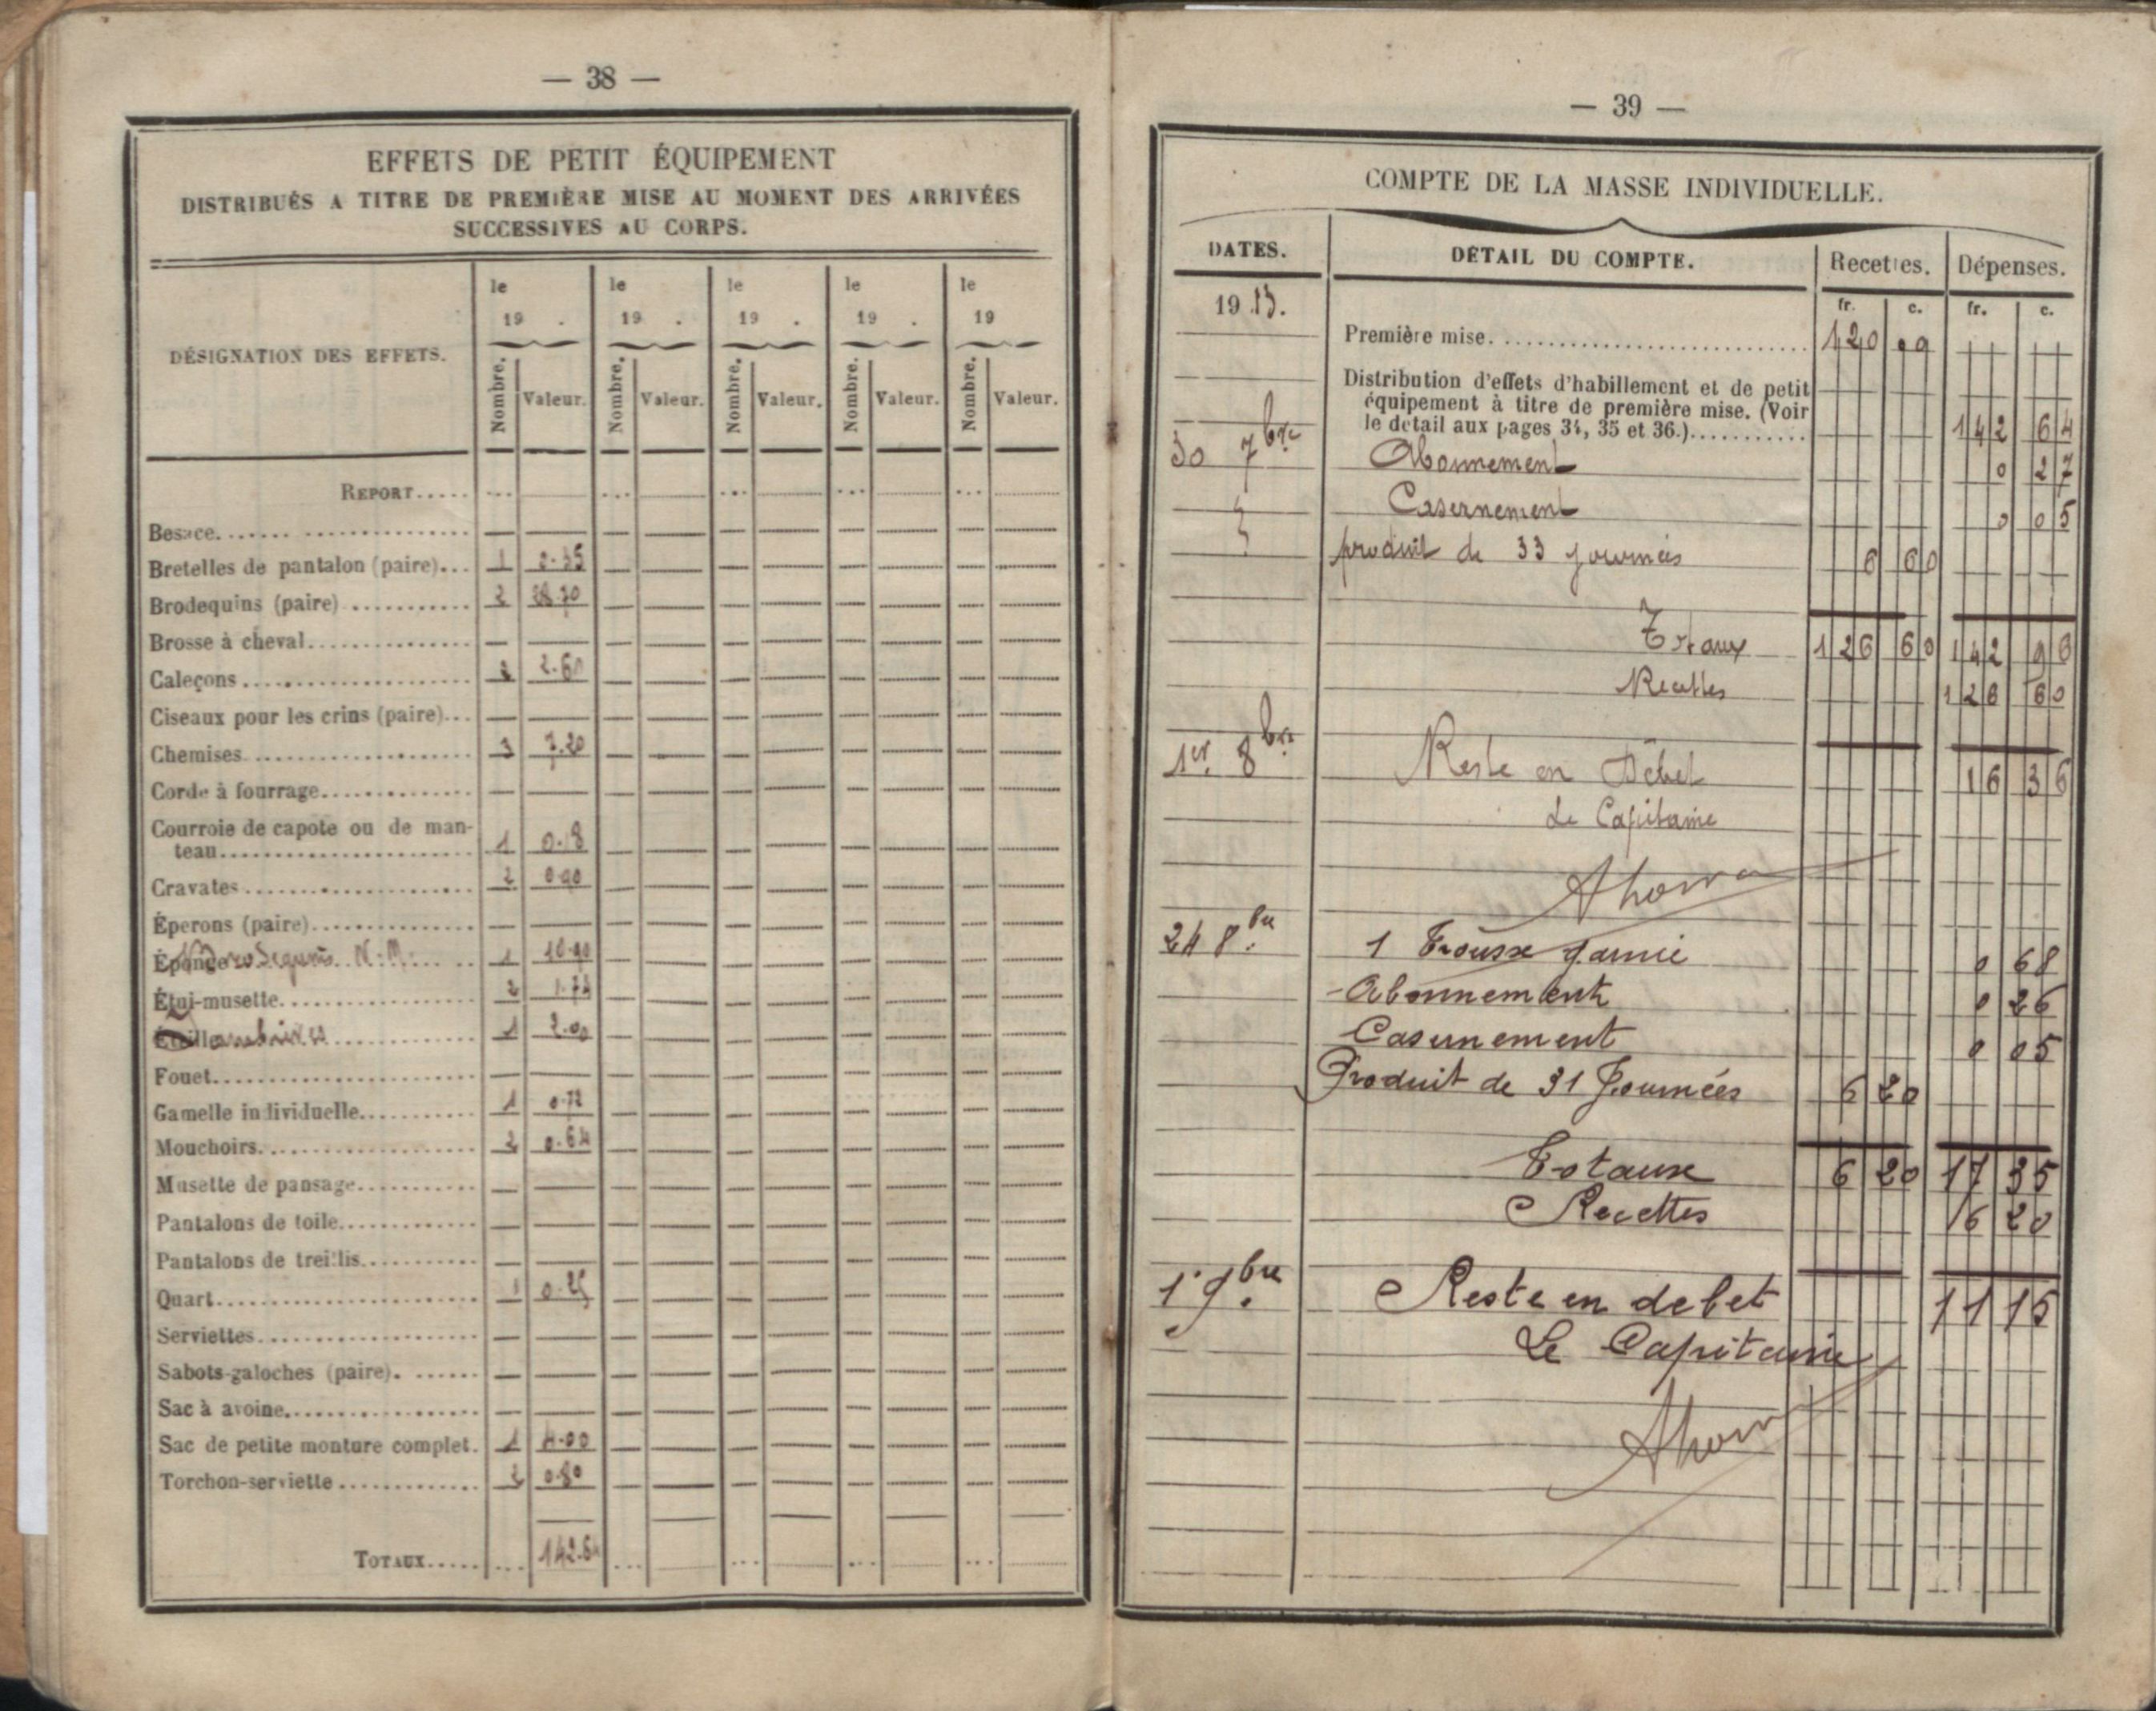 — 38 —
EFFETS DE PETIT ÉQUIPEMENT
DISTRIBUÉS A TITRE DE PREMIÈRE MISE AU MOMENT DES ARRIVÉES
SUCCESSIVES AU CORPS.
DÉSIGNATION DES EFFETS.
le le le le le
19 . 19 . 19 . 19 . 19
Nombre. Valeur. Nombre. Valeur. Nombre. Valeur. Nombre. Valeur. Nombre. Valeur.
REPORT.....
Besace
Bretelles de pantalon (paire)... 1
Brodequins (paire) 2
Brosse à cheval
Caleçons 2.60
Ciseaux pour les crins (paire)...
Chemises 3 7.20
Corde à fourrage
Courroie de capote ou de man-
teau 1 0.18
Cravates 2
Éperons (paire)
N. M. 1
Étui-musette 2
1
Fouet
Gamelle individuelle 1 0.72
Mouchoirs 2 0.64
Musette de pansage
Pantalons de toile
Pantalons de treillis
Quart 1 0.25
Serviettes
Sabots-galoches (paire).
Sac à avoine
Sac de petite monture complet. 1 4.00
Torchon-serviette 2 0.80
TOTAUX..... 142.64
— 39 —
COMPTE DE LA MASSE INDIVIDUELLE.
DATES. DÉTAIL DU COMPTE. Recettes. Dépenses.
fr. c. fr. c.
19 13.
Première mise. 120
Distribution d'effets d'habillement et de petit
équipement à titre de première mise. (Voir
le détail aux pages 34, 35 et 36.) 142 64
30 7bre Abonnement 0 27
Casernement 0 05
produit de 33 journées 6 60
Totaux 126 60 142 96
Recettes 126 60
1er 8bre Reste en Débet 16 36
Le Capitaine
24 8bre 1 Trousse garnie 0 68
Abonnement 0 26
Casernement 0 05
Produit de 31 Journées 6 20
Totaux 6 20 17 35
Recettes 6 20
1 9bre Reste en debet 11 15
Le Capitaine